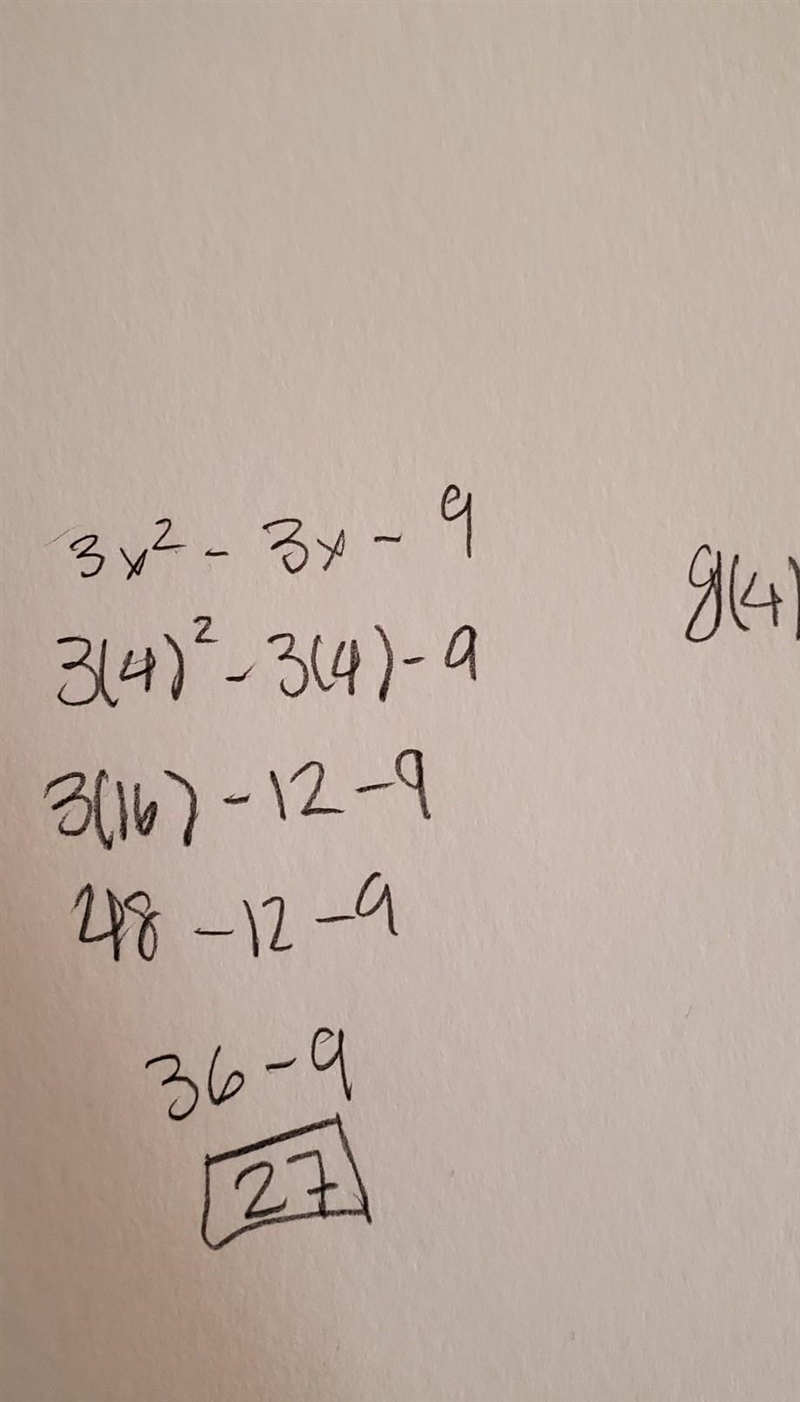 3x² - 3x - 9
g(4)
3(4)² - 3(4) - 9
3(16) - 12 - 9
48 - 12 - 9
36 - 9
27